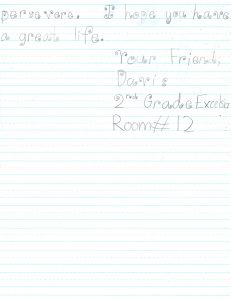 persevere. I hope you have
a great life.
Your Friend,
Davis
2nd Grade Excel
Room# 12